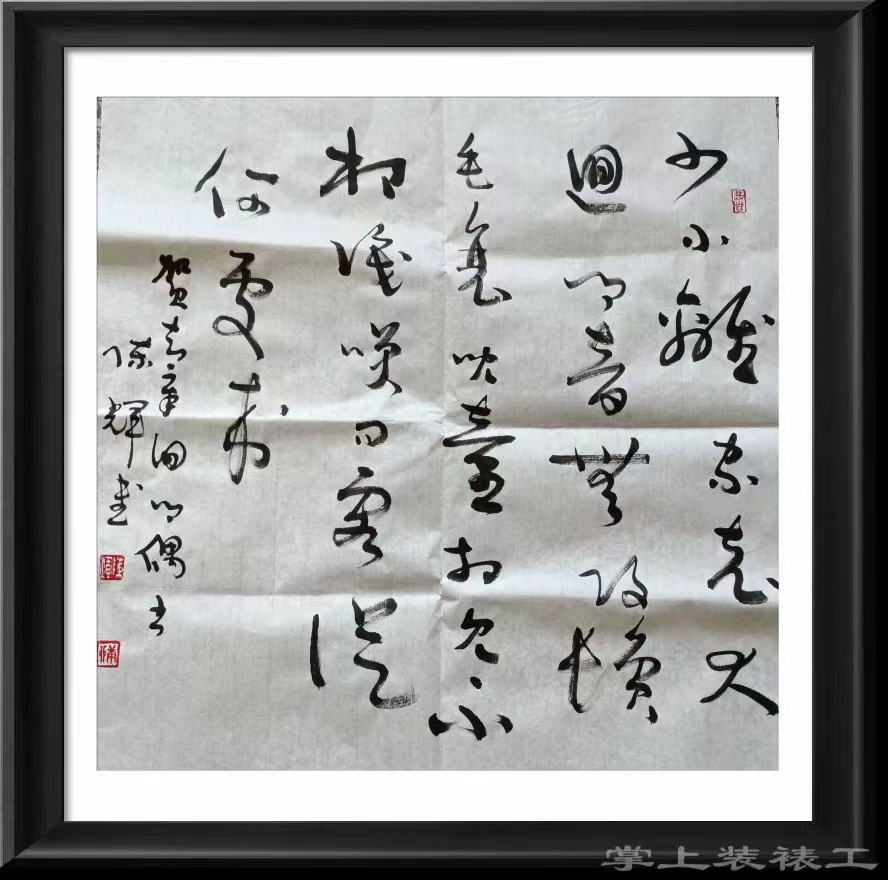 少小離家老大
迴鄉音無改鬢
毛衰兒童相見不
相識咲問客從
何處来
賀知章回鄉偶书
陈輝書
掌上装裱工